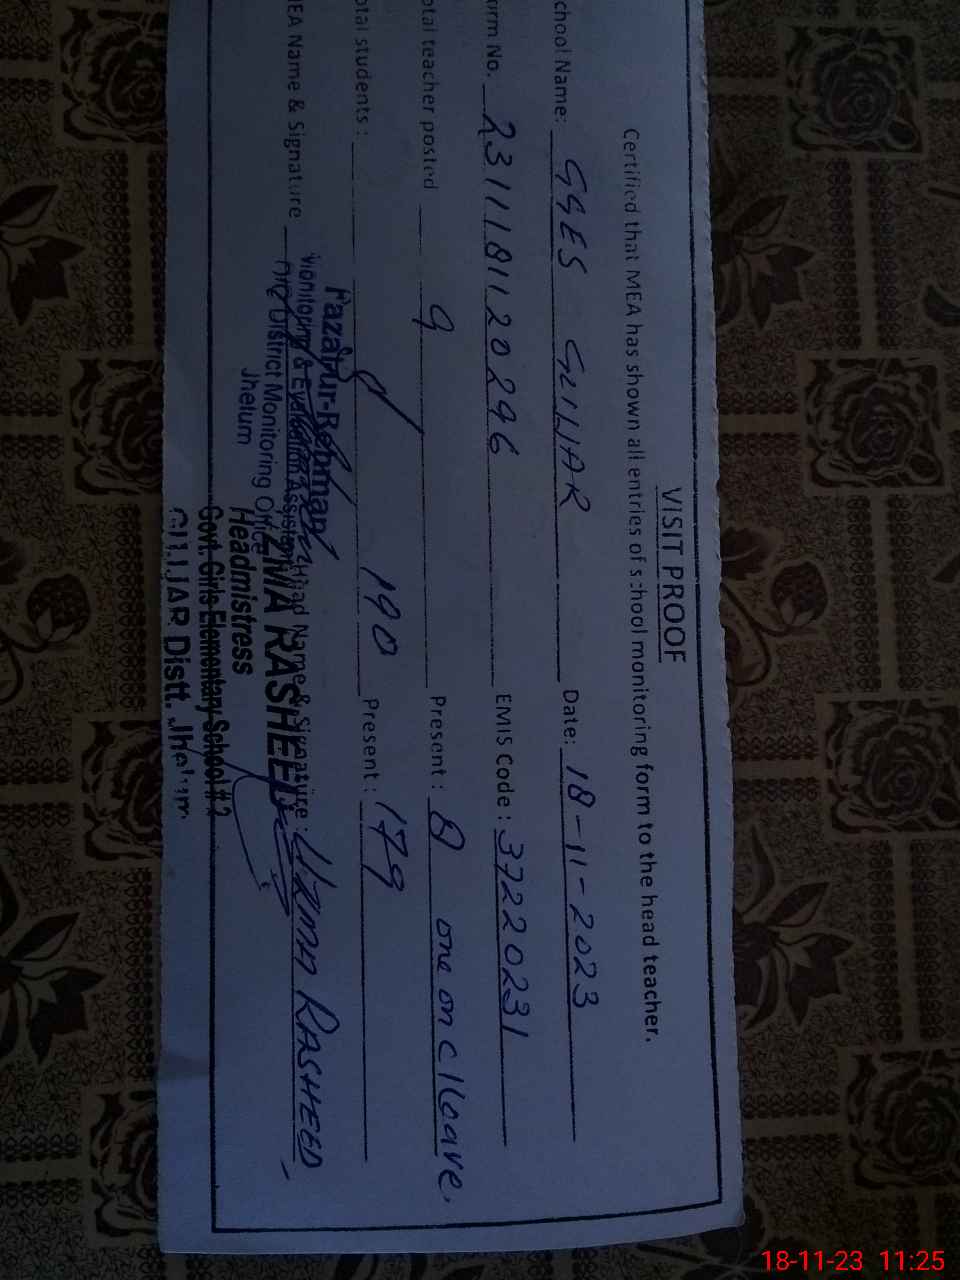 VISIT PROOF
Certified that MEA has shown all entries of school monitoring form to the head teacher.
chool Name: GGES GUJJAR Date: 18-11-2023
orm No. 231118112 0296 EMIS Code : 37220231
otal teacher posted 9 Present : 8 one on c/leave.
otal students : 190 Present : 179
MEA Name & Signature Head Name & Signature: UZMA RASHEED
Fazal-ur-Rehman
Monitoring & Evaluation Assistant
O/o District Monitoring Office
Jhelum
UZMA RASHEED
Headmistress
Govt. Girls Elementary School # 2
GUJJAR Distt. Jhelum
18-11-23 11:25